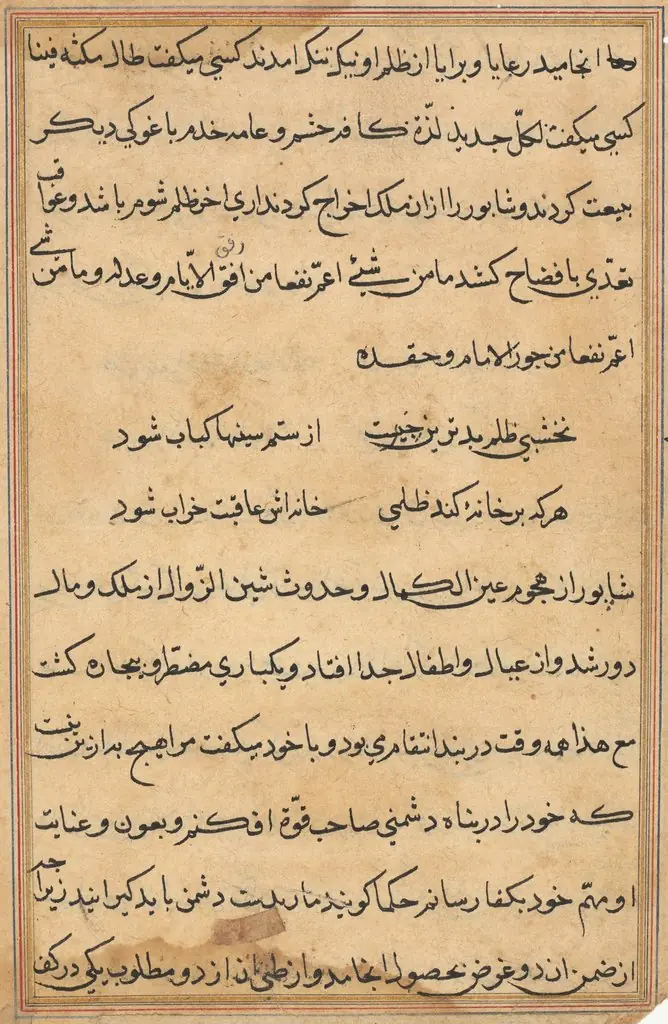 انجامید رعایا و برایا از ظلم او نیک تنک امدند کسی میکفت طال مکثه فینا
کسی میکفت لکلّ جدید لذّة کافه حشم و عامه خدم با غوکی دیکر
بیعت کردند و شاپور را از ان ملک اخراج کردند اری اخر ظلم شوم باشد و عواقب
تعدّی بافضاح کشد ما من شیئ اعمّ نفعا من افق الایّام و عدله و ما من شیئ
رفق
اعمّ نفعا من جور الامام و حقده
نخشبی ظلم بد ترین چیزست از ستم سینها کباب شود
هرکه بر خانهٔ کند ظلمی خانه اش عاقبت خراب شود
شاپور از هجوم عین الکمال و حدوث شین الزّوال از ملک و مال
دور شد و از عیال و اطفال جدا افتاد و یکباری مضطر و بیچاره کشت
مع هذا همه وقت در بند انتقام می بود و با خود میکفت مرا هیچ به ازین نیست
که خود را در پناه دشمنی صاحب قوّة افکنم و بعون و عنایت
او مهمّ خود بکفا رسانم حکما کویند مار بدست دشمن باید کیرانید زیرا چه
از ضمن ان دو غرض بحصول انجامد و از طی ان از دو مطلوب یکی در کف